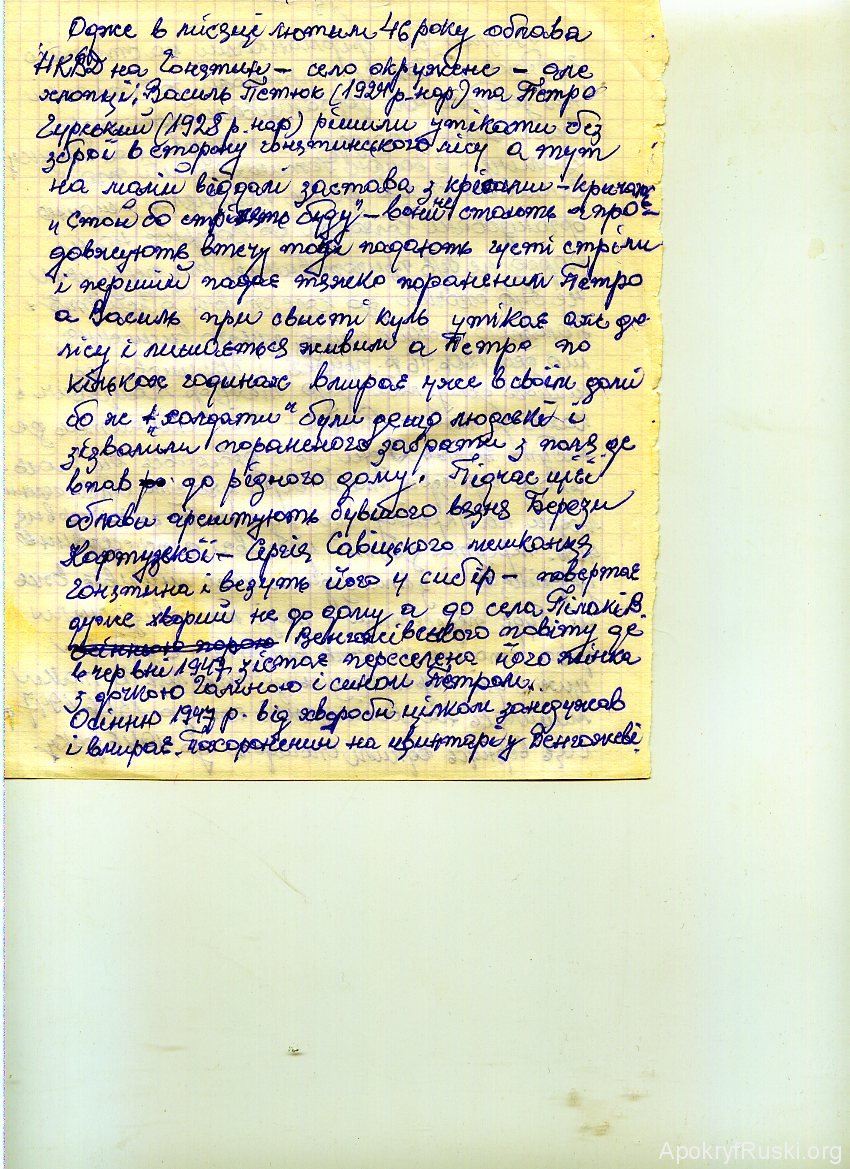 Одже в місяці лютим 46 року облава
НКВД на Гонзтин – село окружене – але
хлопці, Василь Петюк (1924 р.нар) та Петро
Гурський (1928 р.нар) рішили утікати без
зброї в сторону гонзтинського лісу а тут
на малій віддалі застава з крісами – кричать
„стой бо стріляти буду" – вони не стають а про-
довжують втечу тоді падають густі стріли
і перший падає тяжко пораненим Петро
а Василь при свисті куль утікає аже до
лісу і лишається живим а Петро по
кількох годинах вмирає уже в своїм домі
бо ж „солдати" були дещо людскі і
зізвалили пораненого забрати з поля де
впав до рідного дому. Підчас цієї
облави арештують бувшого вязня Берези
Картузскої – Сергія Савіцького мешканця
Гонзтина і везуть його у сибір – повертає
дуже хворий не до дому а до села Пілаків
Венгожівського повіту де
в червні 1947 зістає переселена його жінка
з дочкою Галиною і сином Петром.
Осінню 1947 р. від хвороби цілком занедужав
і вмирає. Похоронений на цвинтарі у Венгожеві.
ApokryfRuski.org